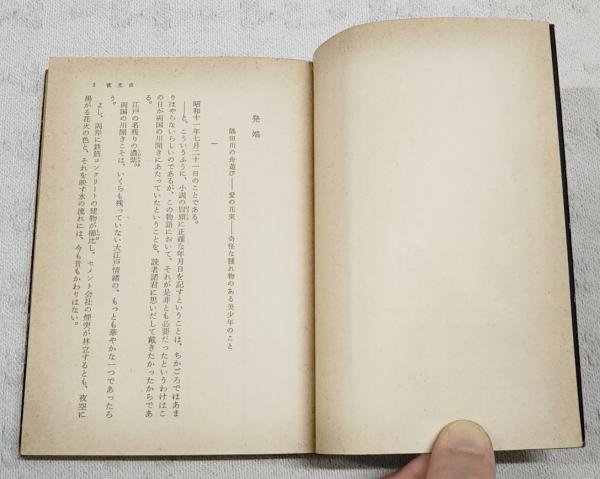 発端
隅田川の舟遊び――愛の花束――奇怪な腫れ物のある美少年のこと
一
昭和十一年七月二十一日のことである。
――と、こういうふうに、小説の冒頭に正確な年月日を記すということは、ちかごろではあま
りはやらないらしいのであるが、この物語において、それが是非とも必要だったというわけはこ
の日が両国の川開きにあたっていたということを、読者諸君に思いだして戴きたかったからであ
る。
江戸の名残りの濃紫。
両国の川開きこそは、いくらも残っていない大江戸情緒の、もっとも華やかな一つであったろ
う。
よし、両岸に鉄筋コンクリートの建物が櫛比し、セメント会社の煙突が林立するとも、夜空に
揚がる花火の色と、それを映す水の流れには、今も昔もかわりはない。
3 夜光虫